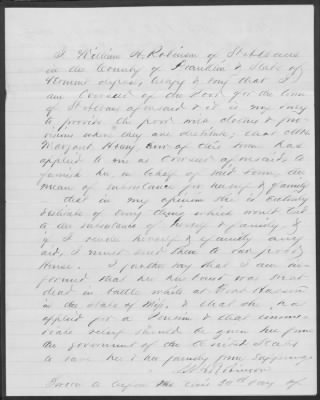 I William H. Robinson of St Albans
in the County of Franklin & State of
Vermont depose & say that I
am Overseer of the Poor for the town
of St Albans aforesaid & it is my duty
to provide the poor with clothes & pro-
visions when they are destitute; that Mrs.
Margaret now of this town has
applied to me as Overseer aforesaid to
furnish her, in behalf of said town, the
means of sustenance for herself & family
that in my opinion she is entirely
destitute of every thing which would tend
to the sustenance of herself & family, &
if I render herself & family any
aid, I must send them to our poor
House. I further say that I am in-
formed that her husband was shot
dead in battle while at
in the State of & that she has
applied for a Pension & that immed-
iate relief should be given her from
the government of the United States
to save her & her family from suffering.
W. H. Robinson
Sworn to before me this 20th day of